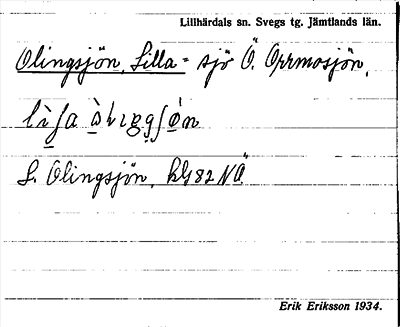 Lillhärdals sn. Svegs tg. Jämtlands län.
Olingsjön, Lilla = sjö Ö. Orrmosjön.
L. Olingsjön, kbl 82 NÖ
Erik Eriksson 1934.